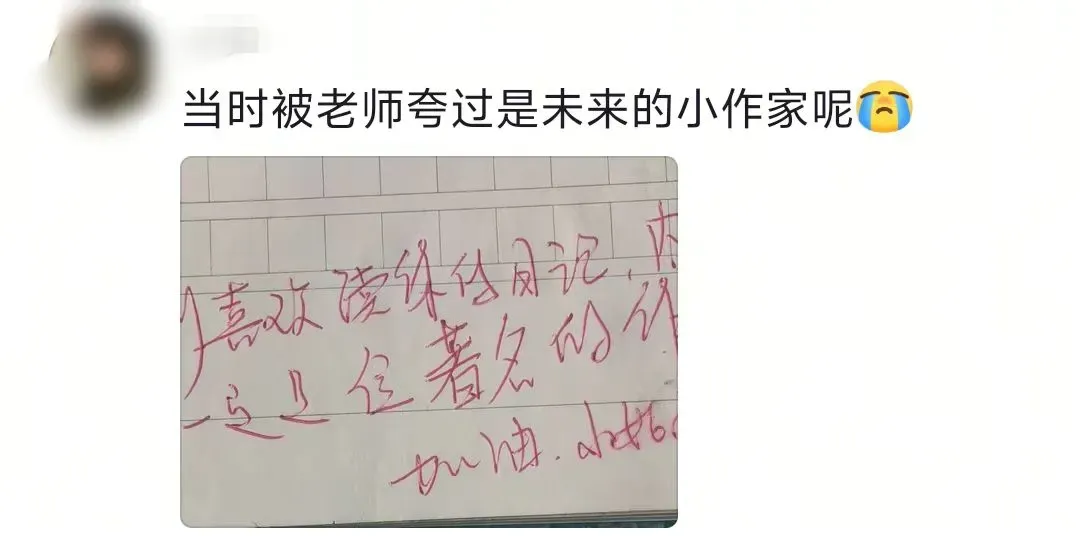 当时被老师夸过是未来的小作家呢😭
喜欢读你的日记,
一定是位著名的作
加油.小姑